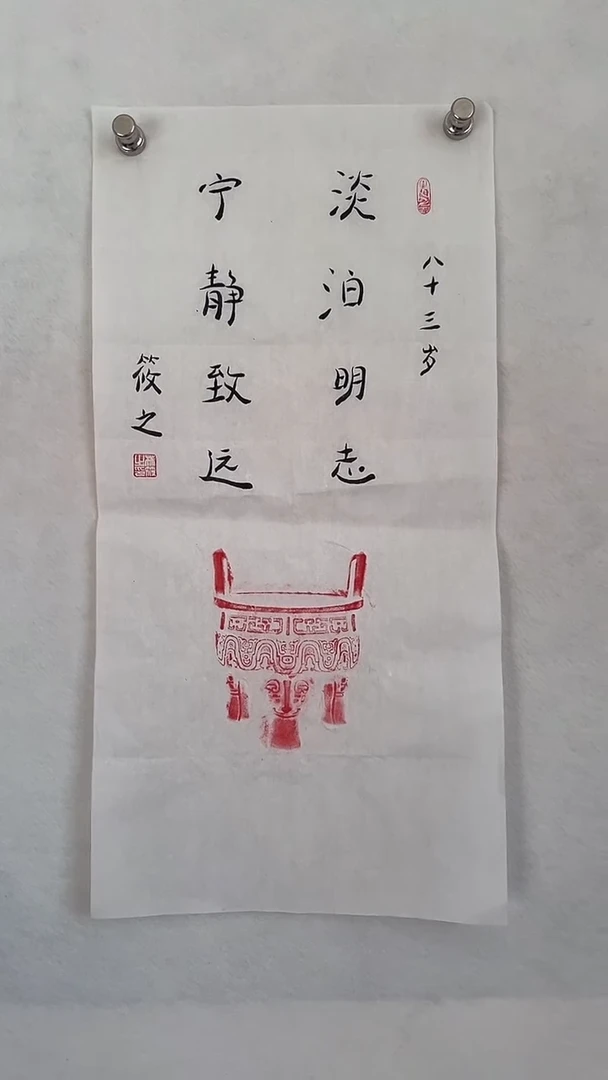 八十三岁
淡泊明志
宁静致远
筱之